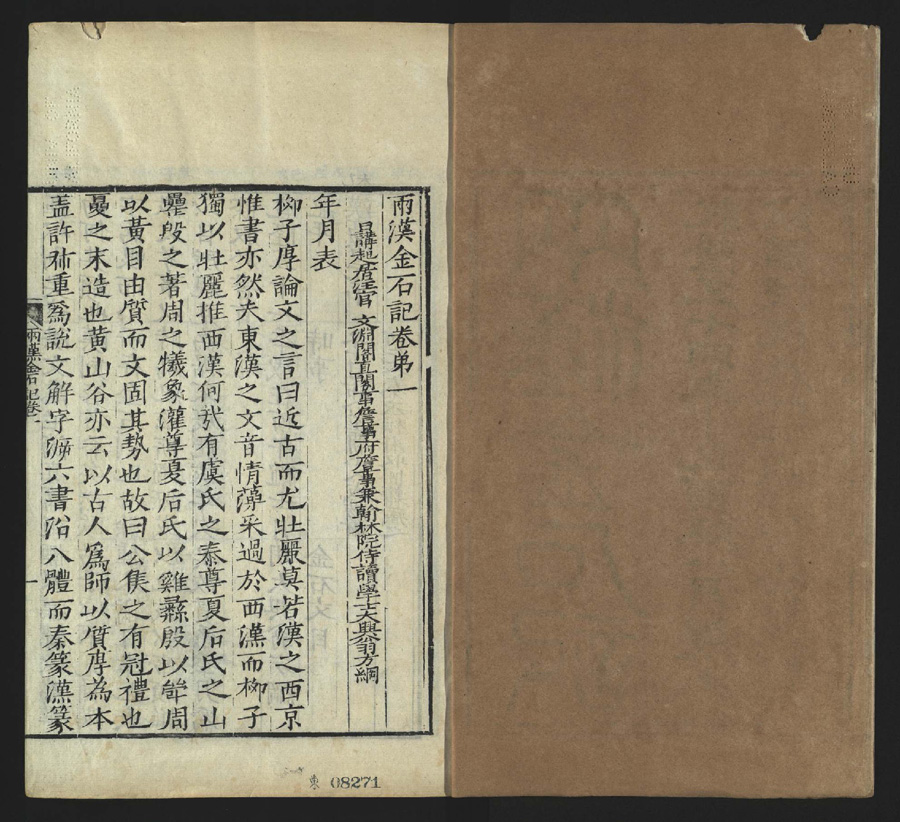 兩漢金石記卷弟一
日講起居注官文淵閣直閣事詹事府詹事兼翰林院侍讀學士大興翁方綱
年月表
柳子厚論文之言曰近古而尤壯麗莫若漢之西京
惟書亦然夫東漢之文音情藻采過於西漢而柳子
獨以壯麗推西漢何哉有虞氏之泰尊夏后氏之山
罍殷之著周之犧象灌尊夏后氏以雞彝殷以斝周
以黃目由質而文固其勢也故曰公侯之有冠禮也
夏之末造也黃山谷亦云以古人爲師以質厚為本
盖許祭重爲說文解字溯六書沿八體而秦篆漢篆
兩漢金石記卷一
一
東 08271